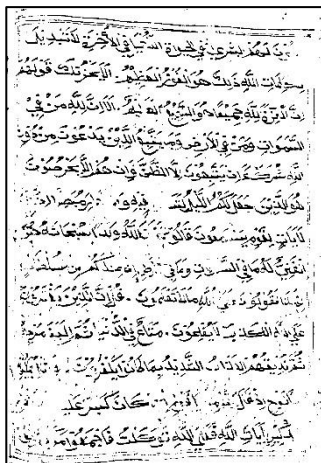 لهم البشرى في الحيوة الدنيا وفي الآخرة لا تبديل
لكلمات الله ذلك هو الفوز العظيم ولا يحزنك قولهم
ان العزة لله جميعا هو السميع العليم الا ان لله من في
السموات ومن في الارض وما يتبع الذين يدعون من دون
الله شركاء ان يتبعون الا الظن وان هم الا يخرصون
هو الذي جعل لكم الليل لتسكنوا فيه والنهار مبصرا ان في ذلك
لآيات لقوم يسمعون قالوا اتخذ الله ولدا سبحانه هو
الغني له ما في السموات وما في الارض ان عندكم من سلطان
بهذا اتقولون على الله ما لا تعلمون قل ان الذين يفترون
على الله الكذب لا يفلحون متاع في الدنيا ثم الينا مرجعهم
ثم نذيقهم العذاب الشديد بما كانوا يكفرون واتل عليهم
نبأ نوح اذ قال لقومه يا قوم ان كان كبر عليكم
بآيات الله فعلى الله توكلت فاجمعوا امركم